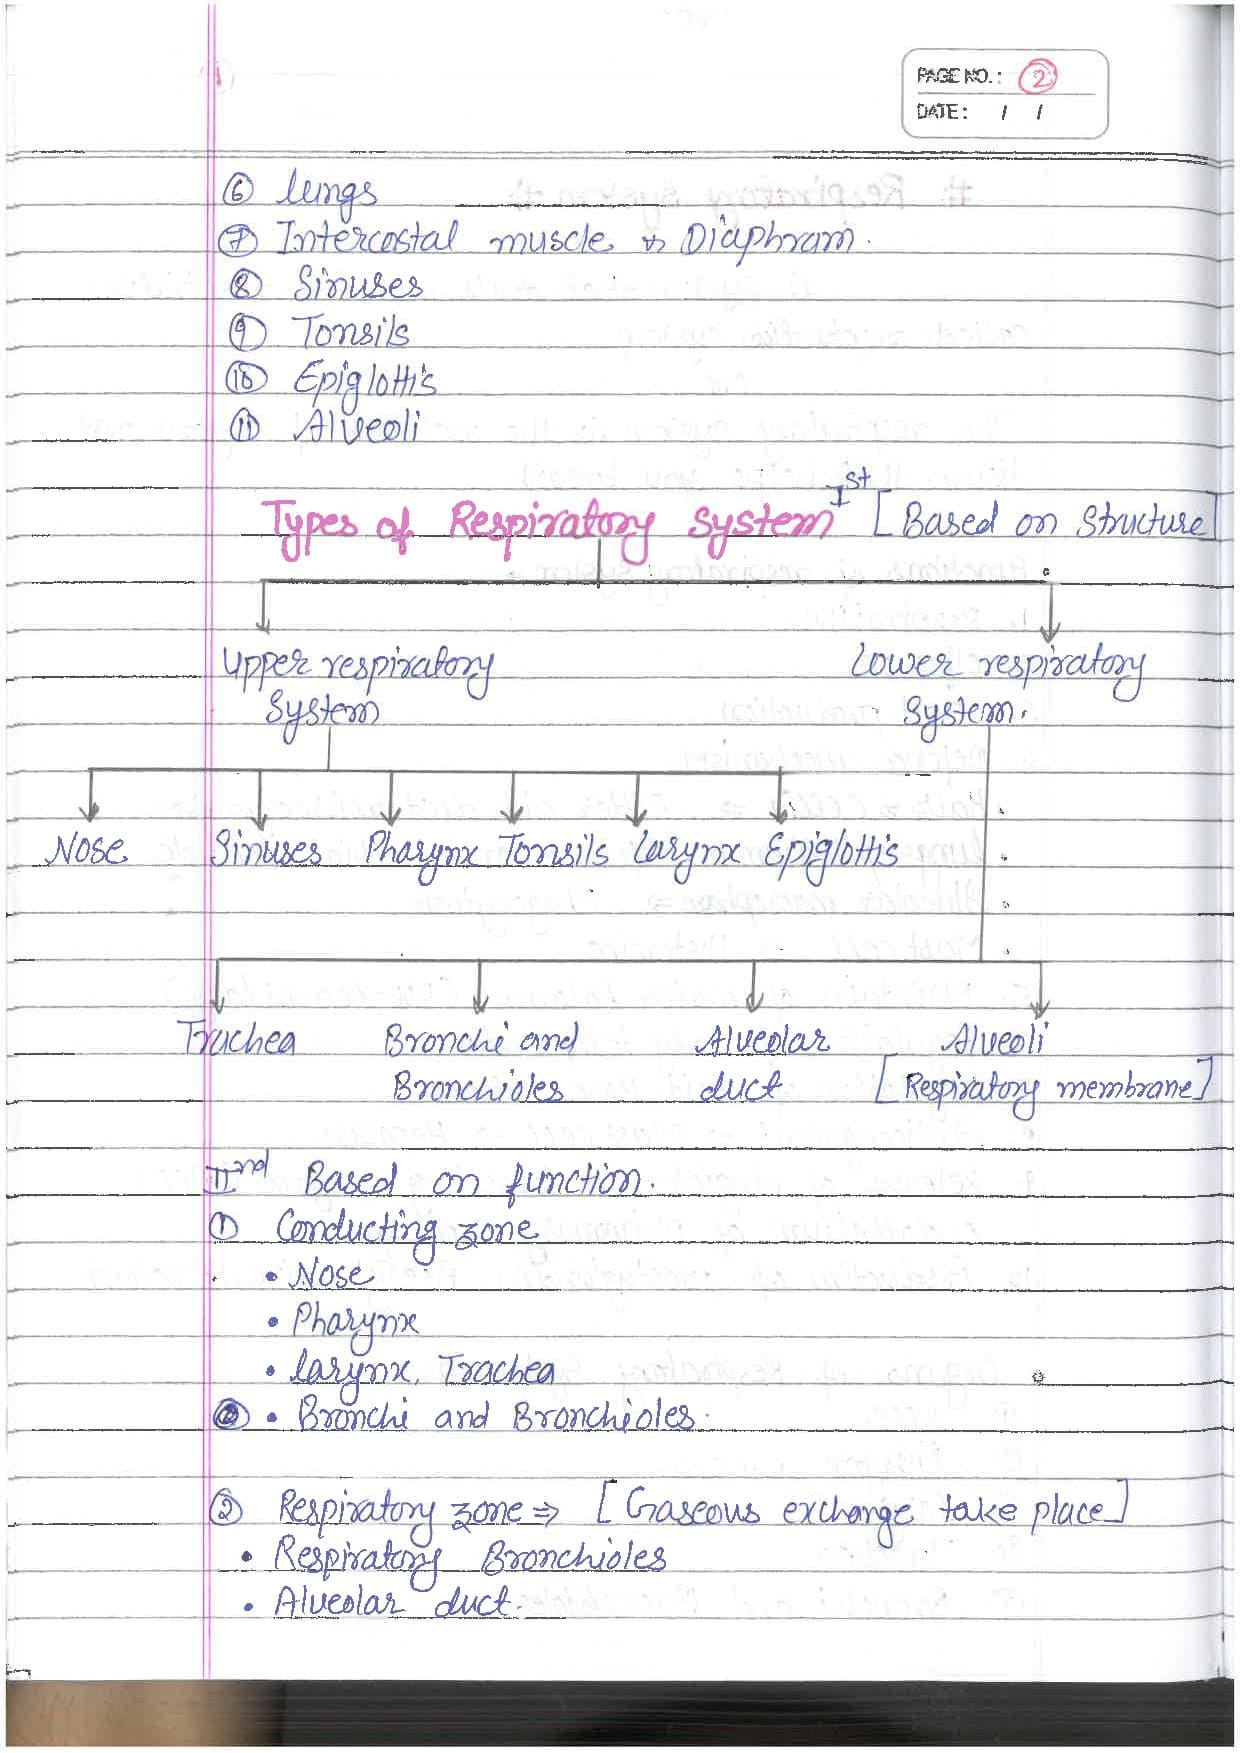 PAGE NO.: 2
DATE: / /
⑥ Lungs
⑦ Intercostal muscle & Diaphram.
⑧ Sinuses
⑨ Tonsils
⑩ Epiglottis
⑪ Alveoli
Types of Respiratory System Ist [Based on Structure]
Upper respiratory System
Lower respiratory System.
Nose Sinuses Pharynx Tonsils Larynx Epiglottis
Trachea Bronchi and Alveolar Alveoli
Bronchioles duct [Respiratory membrane]
IInd Based on function.
① Conducting zone
• Nose
• Pharynx
• Larynx, Trachea
• Bronchi and Bronchioles.
② Respiratory zone ⇒ [Gaseous exchange take place]
• Respiratory Bronchioles
• Alveolar duct.